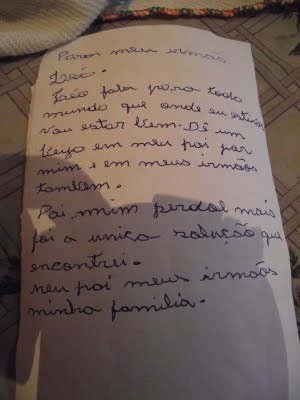 Para meu irmão
Léo.
Léo fala para todo
mundo que onde eu estiver
vou estar bem. Dê um
beijo em meu pai par
mim e em meus irmãos
tambem.
Pai mim perdoi mais
foi a unica solução que
encontrei.
meu pai meus irmãos
minha familia.